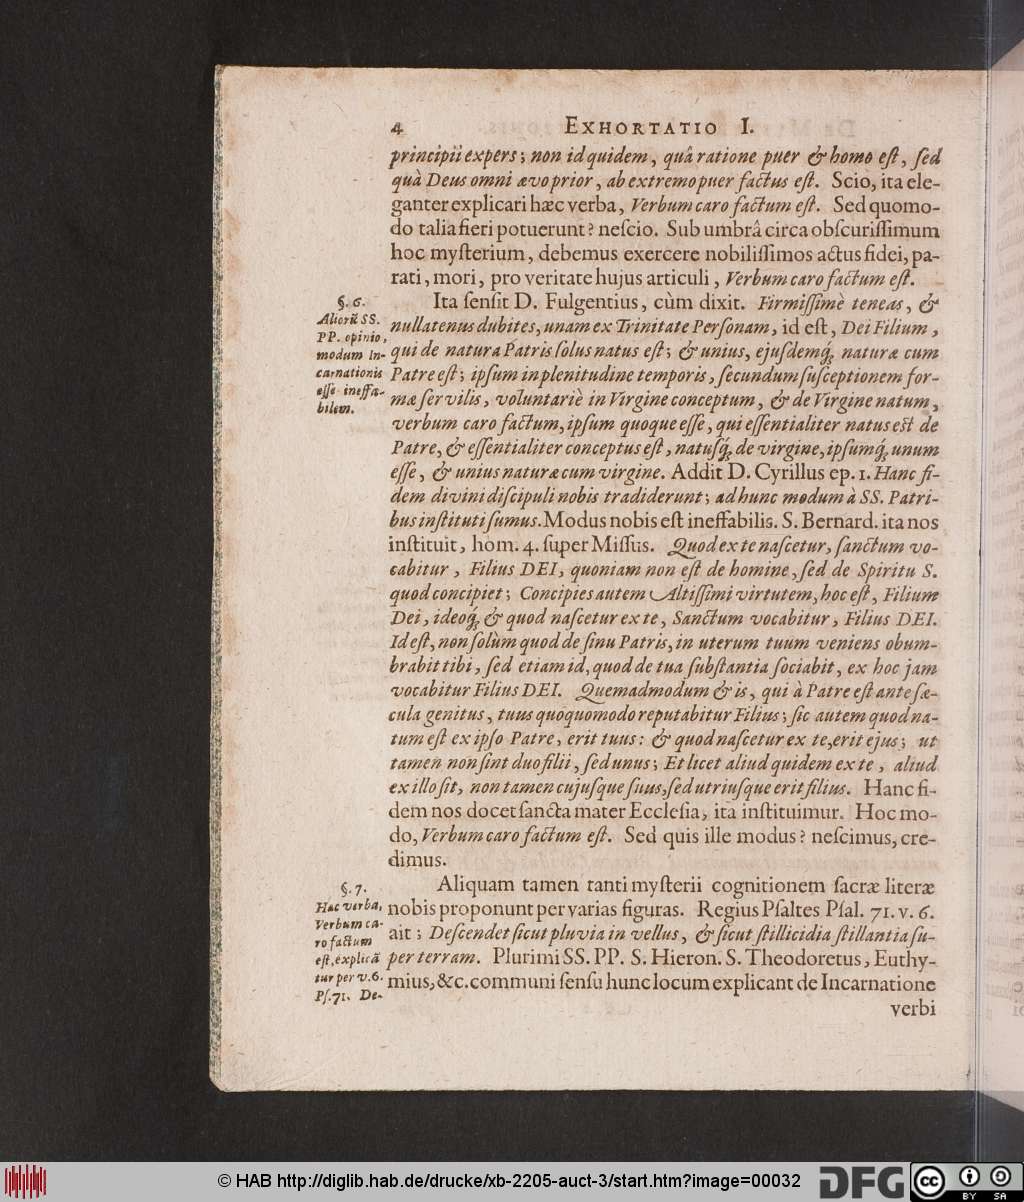 4 EXHORTATIO I.
principii expers; non id quidem, quâ ratione puer & homo eſt, ſed
quà Deus omni ævo prior, ab extremo puer factus eſt. Scio, ita ele-
ganter explicari hæc verba, Verbum caro factum eſt. Sed quomo-
do talia fieri potuerunt? neſcio. Sub umbrâ circa obſcuriſſimum
hoc myſterium, debemus exercere nobiliſſimos actus fidei, pa-
rati, mori, pro veritate hujus articuli, Verbum caro factum eſt.
§. 6.
Aliorū SS.
PP. opinio,
modum In-
carnationis
eſſe ineffa-
bilem.
Ita ſenſit D. Fulgentius, cùm dixit. Firmiſſimè teneas, &
nullatenus dubites, unam ex Trinitate Perſonam, id eſt, Dei Filium,
qui de natura Patris ſolus natus eſt; & unius, ejuſdemq́; naturæ cum
Patre eſt; ipſum in plenitudine temporis, ſecundum ſuſceptionem for-
mæ ſervilis, voluntariè in Virgine conceptum, & de Virgine natum,
verbum caro factum, ipſum quoque eſſe, qui eſſentialiter natus est de
Patre, & eſſentialiter conceptus eſt, natuſq́; de virgine, ipſumq́; unum
eſſe, & unius naturæ cum virgine. Addit D. Cyrillus ep. 1. Hanc fi-
dem divini diſcipuli nobis tradiderunt; ad hunc modum à SS. Patri-
bus inſtituti ſumus. Modus nobis eſt ineffabilis. S. Bernard. ita nos
inſtituit, hom. 4. ſuper Miſſus. Quod ex te naſcetur, ſanctum vo-
cabitur, Filius DEI, quoniam non eſt de homine, ſed de Spiritu S.
quod concipiet; Concipies autem Altiſſimi virtutem, hoc eſt, Filium
Dei, ideoq́; & quod naſcetur ex te, Sanctum vocabitur, Filius DEI.
Id eſt, non ſolùm quod de ſinu Patris, in uterum tuum veniens obum-
brabit tibi, ſed etiam id, quod de tua ſubſtantia ſociabit, ex hoc jam
vocabitur Filius DEI. Quemadmodum & is, qui à Patre eſt ante ſæ-
cula genitus, tuus quoquomodo reputabitur Filius; ſic autem quod na-
tum eſt ex ipſo Patre, erit tuus: & quod naſcetur ex te, erit ejus; ut
tamen non ſint duo filii, ſed unus; Et licet aliud quidem ex te, aliud
ex illo ſit, non tamen cujuſque ſuus, ſed utriuſque erit filius. Hanc fi-
dem nos docet ſancta mater Eccleſia, ita inſtituimur. Hoc mo-
do, Verbum caro factum eſt. Sed quis ille modus? neſcimus, cre-
dimus.
§. 7.
Hæc verba,
Verbum ca-
ro factum
eſt, explicā
tur per v. 6.
Pſ. 71. De-
Aliquam tamen tanti myſterii cognitionem ſacræ literæ
nobis proponunt per varias figuras. Regius Pſaltes Pſal. 71. v. 6.
ait; Deſcendet ſicut pluvia in vellus, & ſicut ſtillicidia ſtillantia ſu-
per terram. Plurimi SS. PP. S. Hieron. S. Theodoretus, Euthy-
mius, &c. communi ſenſu hunc locum explicant de Incarnatione
verbi
© HAB http://diglib.hab.de/drucke/xb-2205-auct-3/start.htm?image=00032
DFG
cc BY SA